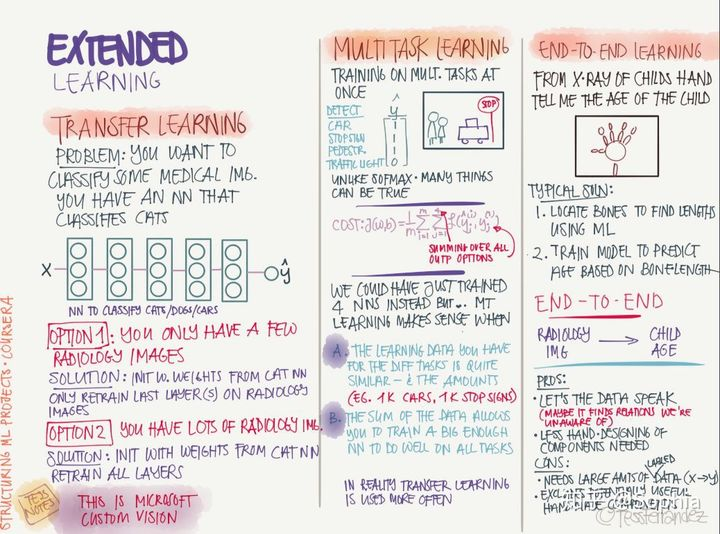 EXTENDED
LEARNING
TRANSFER LEARNING
PROBLEM: YOU WANT TO
CLASSIFY SOME MEDICAL IMG.
YOU HAVE AN NN THAT
CLASSIFIES CATS
X
ŷ
NN TO CLASSIFY CATS/DOGS/CARS
OPTION 1: YOU ONLY HAVE A FEW
RADIOLOGY IMAGES
SOLUTION: INIT W. WEIGHTS FROM CAT NN
ONLY RETRAIN LAST LAYER(S) ON RADIOLOGY
IMAGES
OPTION 2 YOU HAVE LOTS OF RADIOLOGY IMG.
SOLUTION: INIT WITH WEIGHTS FROM CAT NN
RETRAIN ALL LAYERS
TESS
NOTES
THIS IS MICROSOFT
CUSTOM VISION
STRUCTURING ML PROJECTS · COURSERA
MULTI TASK LEARNING
TRAINING ON MULT. TASKS AT
ONCE
ŷ
DETECT
CAR
STOPSIGN
PEDESTR.
TRAFFIC LIGHT
1
1
1
0
STOP
UNLIKE SOFMAX · MANY THINGS
CAN BE TRUE
COST: J(w,b) = 1/m Σ(i=1..m) Σ(j=1..4) ℒ(ŷⱼ⁽ⁱ⁾, yⱼ⁽ⁱ⁾)
SUMMING OVER ALL
OUTP OPTIONS
WE COULD HAVE JUST TRAINED
4 NNS INSTEAD BUT... MT
LEARNING MAKES SENSE WHEN
A. THE LEARNING DATA YOU HAVE
FOR THE DIFF TASKS IS QUITE
SIMILAR - & THE AMOUNTS
(EG. 1K CARS, 1K STOP SIGNS)
B. THE SUM OF THE DATA ALLOWS
YOU TO TRAIN A BIG ENOUGH
NN TO DO WELL ON ALL TASKS
IN REALITY TRANSFER LEARNING
IS USED MORE OFTEN
END-TO-END LEARNING
FROM X-RAY OF CHILDS HAND
TELL ME THE AGE OF THE CHILD
TYPICAL SOLN:
1. LOCATE BONES TO FIND LENGTHS
USING ML
2. TRAIN MODEL TO PREDICT
AGE BASED ON BONELENGTH
END-TO-END
RADIOLOGY
IMG
→ CHILD
AGE
PROS:
· LET'S THE DATA SPEAK
(MAYBE IT FINDS RELATIONS WE'RE
UNAWARE OF)
· LESS HAND-DESIGNING OF
COMPONENTS NEEDED
CONS:
· NEEDS LARGE AMTS OF LABLED DATA (X→Y)
· EXCLUDES POTENTIALLY USEFUL
HAND
©TessFerrandez